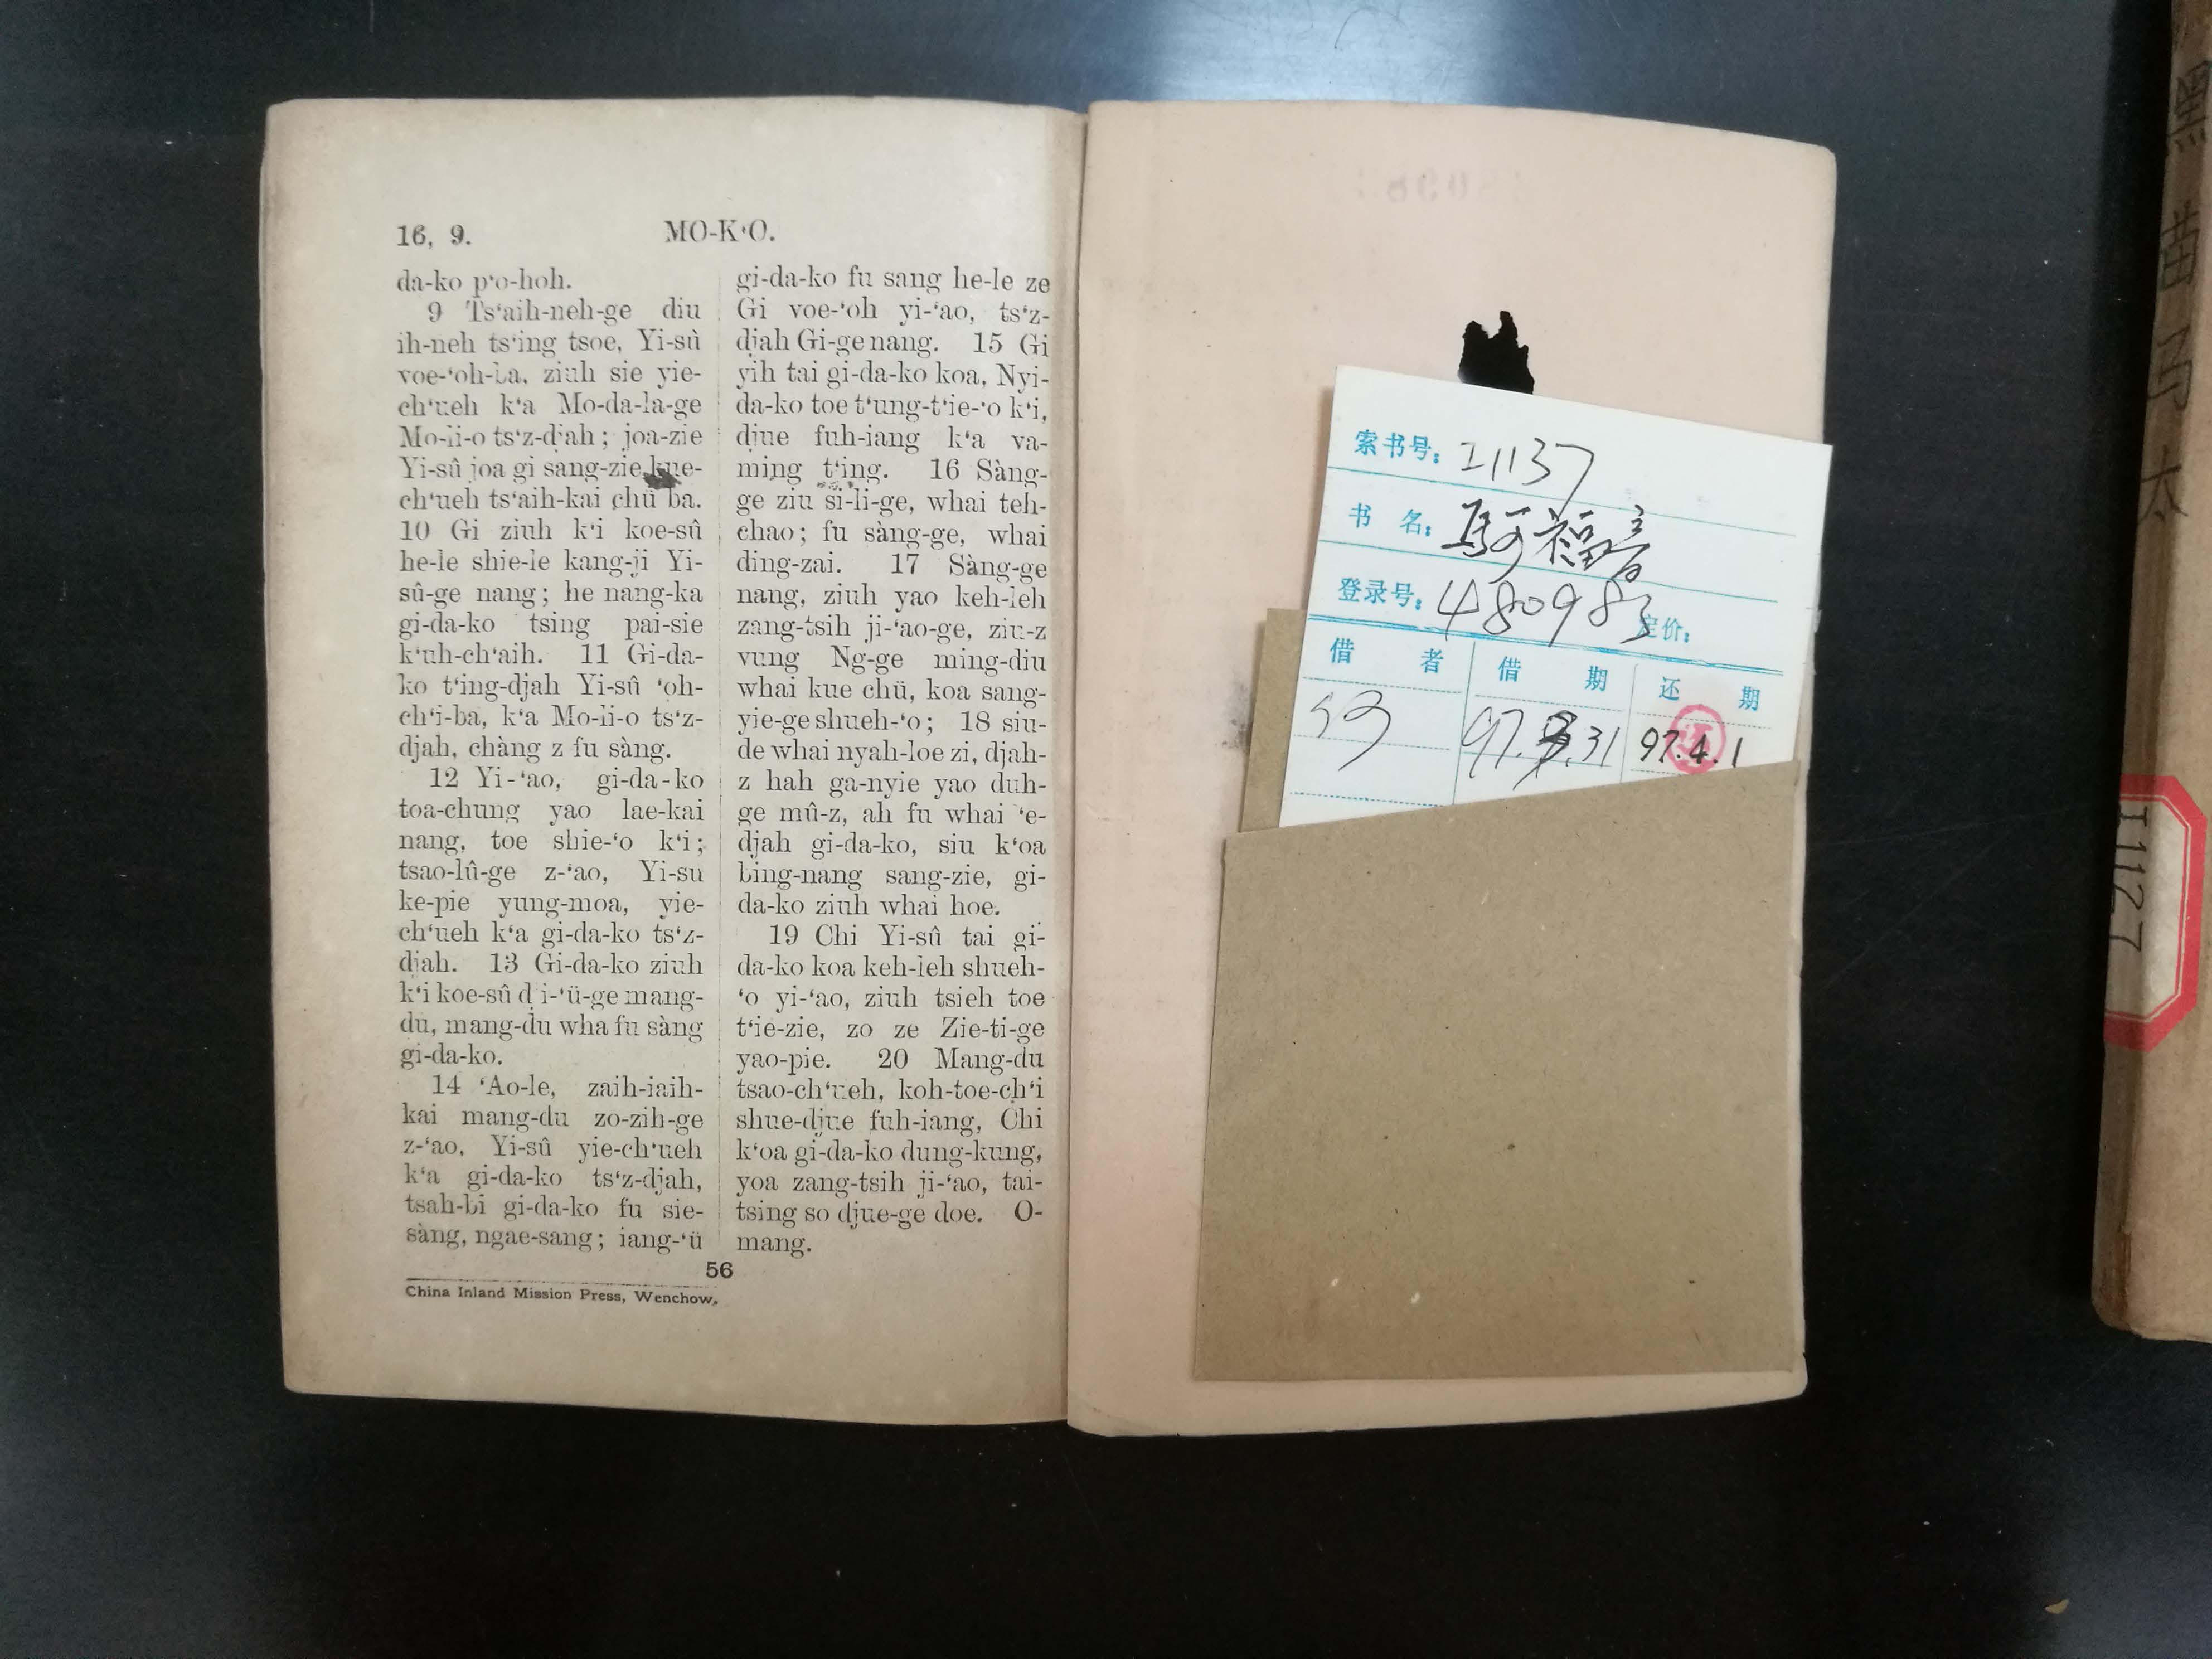 16, 9.
MO-K‘O.
da-ko p‘o-hoh.
9 Ts‘aih-neh-ge diu
ih-neh ts‘ing tsoe, Yi-sû
voe-‘oh-ba, ziuh sie yie-
ch‘ueh k‘a Mo-da-la-ge
Mo-li-o ts‘z-djah; joa-zie
Yi-sû joa gi sàng-zie kue-
ch‘ueh ts‘aih-kai chü ba.
10 Gi ziuh k‘i koe-sû
he-le shie-le kang-ji Yi-
sû-ge nang; he nang-ka
gi-da-ko tsing pai-sie
k‘uh-ch‘aih. 11 Gi-da-
ko t‘ing-djah Yi-sû ‘oh-
ch‘i-ba, k‘a Mo-li-o ts‘z-
djah, chàng z fu sàng.
12 Yi-‘ao, gi-da-ko
toa-chung yao lae-kai
nang, toe shie-‘o k‘i;
tsao-lû-ge z-‘ao, Yi-su
ke-pie yung-moa, yie-
ch‘ueh k‘a gi-da-ko ts‘z-
djah. 13 Gi-da-ko ziuh
k‘i koe-sû di-‘ü-ge mang-
du, mang-du wha fu sàng
gi-da-ko.
14 ‘Ao-le, zaih-iaih-
kai mang-du zo-zih-ge
z-‘ao, Yi-sû yie-ch‘ueh
k‘a gi-da-ko ts‘z-djah,
tsah-bi gi-da-ko fu sie-
sàng, ngae-sang; iang-‘ü
gi-da-ko fu sang he-le ze
Gi voe-‘oh yi-‘ao, ts‘z-
djah Gi-ge nang. 15 Gi
yih tai gi-da-ko koa, Nyi-
da-ko toe t‘ung-t‘ie-‘o k‘i,
djue fuh-iang k‘a va-
ming t‘ing. 16 Sàng-
ge ziu si-li-ge, whai teh-
chao; fu sàng-ge, whai
ding-zai. 17 Sàng-ge
nang, ziuh yao keh-leh
zang-tsih ji-‘ao-ge, ziu-z
vung Ng-ge ming-diu
whai kue chü, koa sang-
yie-ge shueh-‘o; 18 siu-
de whai nyah-loe zi, djah-
z hah ga-nyie yao duh-
ge mû-z, ah fu whai ‘e-
djah gi-da-ko, siu k‘oa
bing-nang sang-zie, gi-
da-ko ziuh whai hoe.
19 Chi Yi-sû tai gi-
da-ko koa keh-leh shueh-
‘o yi-‘ao, ziuh tsieh toe
t‘ie-zie, zo ze Zie-ti-ge
yao-pie. 20 Mang-du
tsao-ch‘ueh, koh-toe-ch‘i
shue-djue fuh-iang, Chi
k‘oa gi-da-ko dung-kung,
yoa zang-tsih ji-‘ao, tai-
tsing so djue-ge doe. O-
mang.
56
China Inland Mission Press, Wenchow.
索书号: 21137
书 名: 馬可福音
登录号: 480983 定价:
借 者 借 期 还 期
97.3.31 97.4.1
苗 马 太